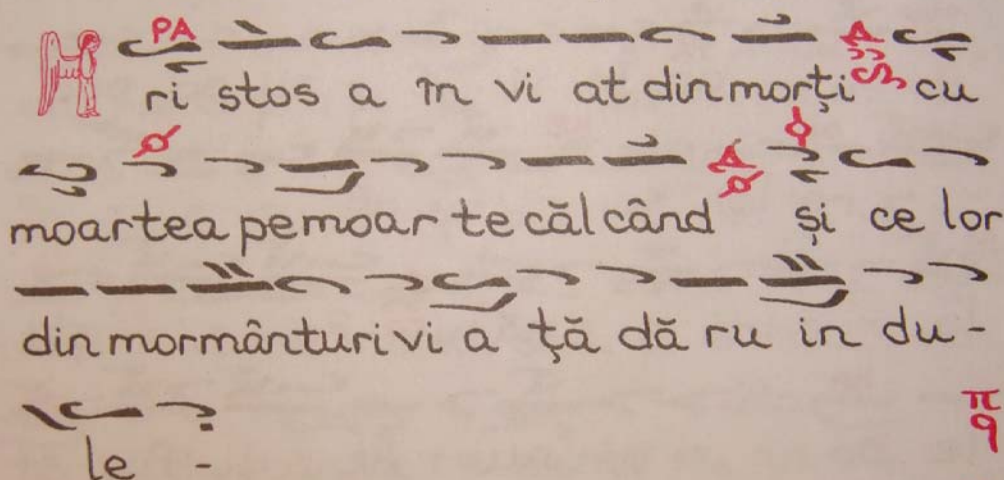 PA
Hri stos a în vi at din morţi cu
moartea pe moar te căl când şi ce lor
din mormânturi vi a ţă dă ru in du -
le -
π
q